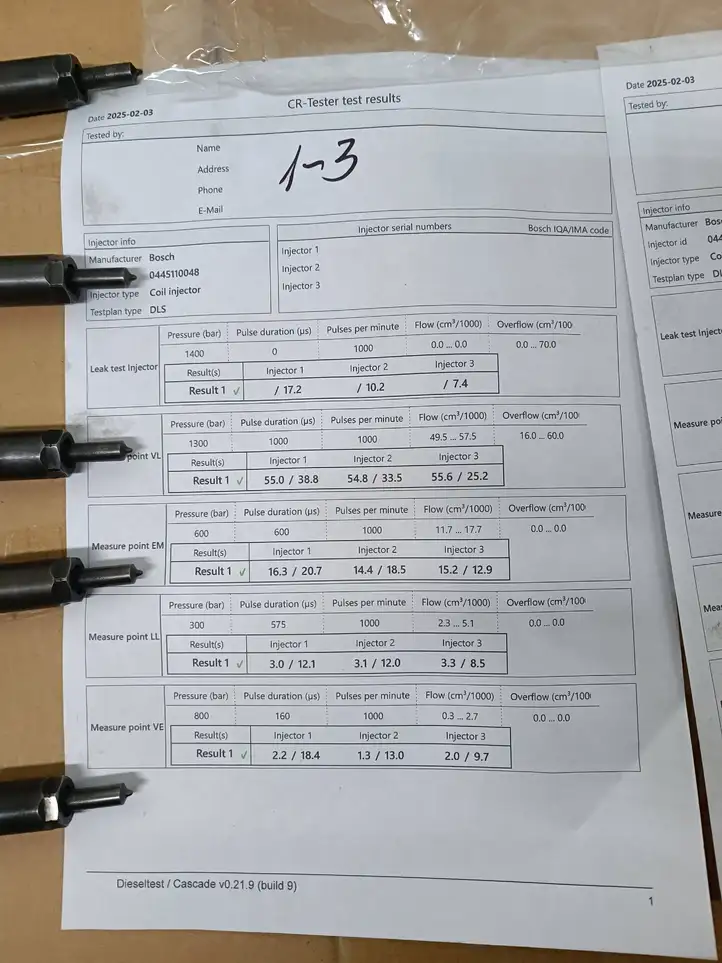 CR-Tester test results
Date 2025-02-03
Tested by:
Name
Address
Phone
E-Mail
1-3
Injector info
Manufacturer Bosch
0445110048
Injector type Coil injector
Testplan type DLS
Injector serial numbers Bosch IQA/IMA code
Injector 1
Injector 2
Injector 3
Leak test Injector
Pressure (bar) Pulse duration (µs) Pulses per minute Flow (cm³/1000) Overflow (cm³/100
1400 0 1000 0.0 ... 0.0 0.0 ... 70.0
Result(s) Injector 1 Injector 2 Injector 3
Result 1 ✓ / 17.2 / 10.2 / 7.4
point VL
Pressure (bar) Pulse duration (µs) Pulses per minute Flow (cm³/1000) Overflow (cm³/100
1300 1000 1000 49.5 ... 57.5 16.0 ... 60.0
Result(s) Injector 1 Injector 2 Injector 3
Result 1 ✓ 55.0 / 38.8 54.8 / 33.5 55.6 / 25.2
Measure point EM
Pressure (bar) Pulse duration (µs) Pulses per minute Flow (cm³/1000) Overflow (cm³/100
600 600 1000 11.7 ... 17.7 0.0 ... 0.0
Result(s) Injector 1 Injector 2 Injector 3
Result 1 ✓ 16.3 / 20.7 14.4 / 18.5 15.2 / 12.9
Measure point LL
Pressure (bar) Pulse duration (µs) Pulses per minute Flow (cm³/1000) Overflow (cm³/100
300 575 1000 2.3 ... 5.1 0.0 ... 0.0
Result(s) Injector 1 Injector 2 Injector 3
Result 1 ✓ 3.0 / 12.1 3.1 / 12.0 3.3 / 8.5
Measure point VE
Pressure (bar) Pulse duration (µs) Pulses per minute Flow (cm³/1000) Overflow (cm³/100
800 160 1000 0.3 ... 2.7 0.0 ... 0.0
Result(s) Injector 1 Injector 2 Injector 3
Result 1 ✓ 2.2 / 18.4 1.3 / 13.0 2.0 / 9.7
Dieseltest / Cascade v0.21.9 (build 9)
1
Date 2025-02-03
Tested by:
Injector info
Manufacturer Bos
Injector id 044
Injector type Co
Testplan type DL
Leak test Inject
Measure poi
Measure
Mea